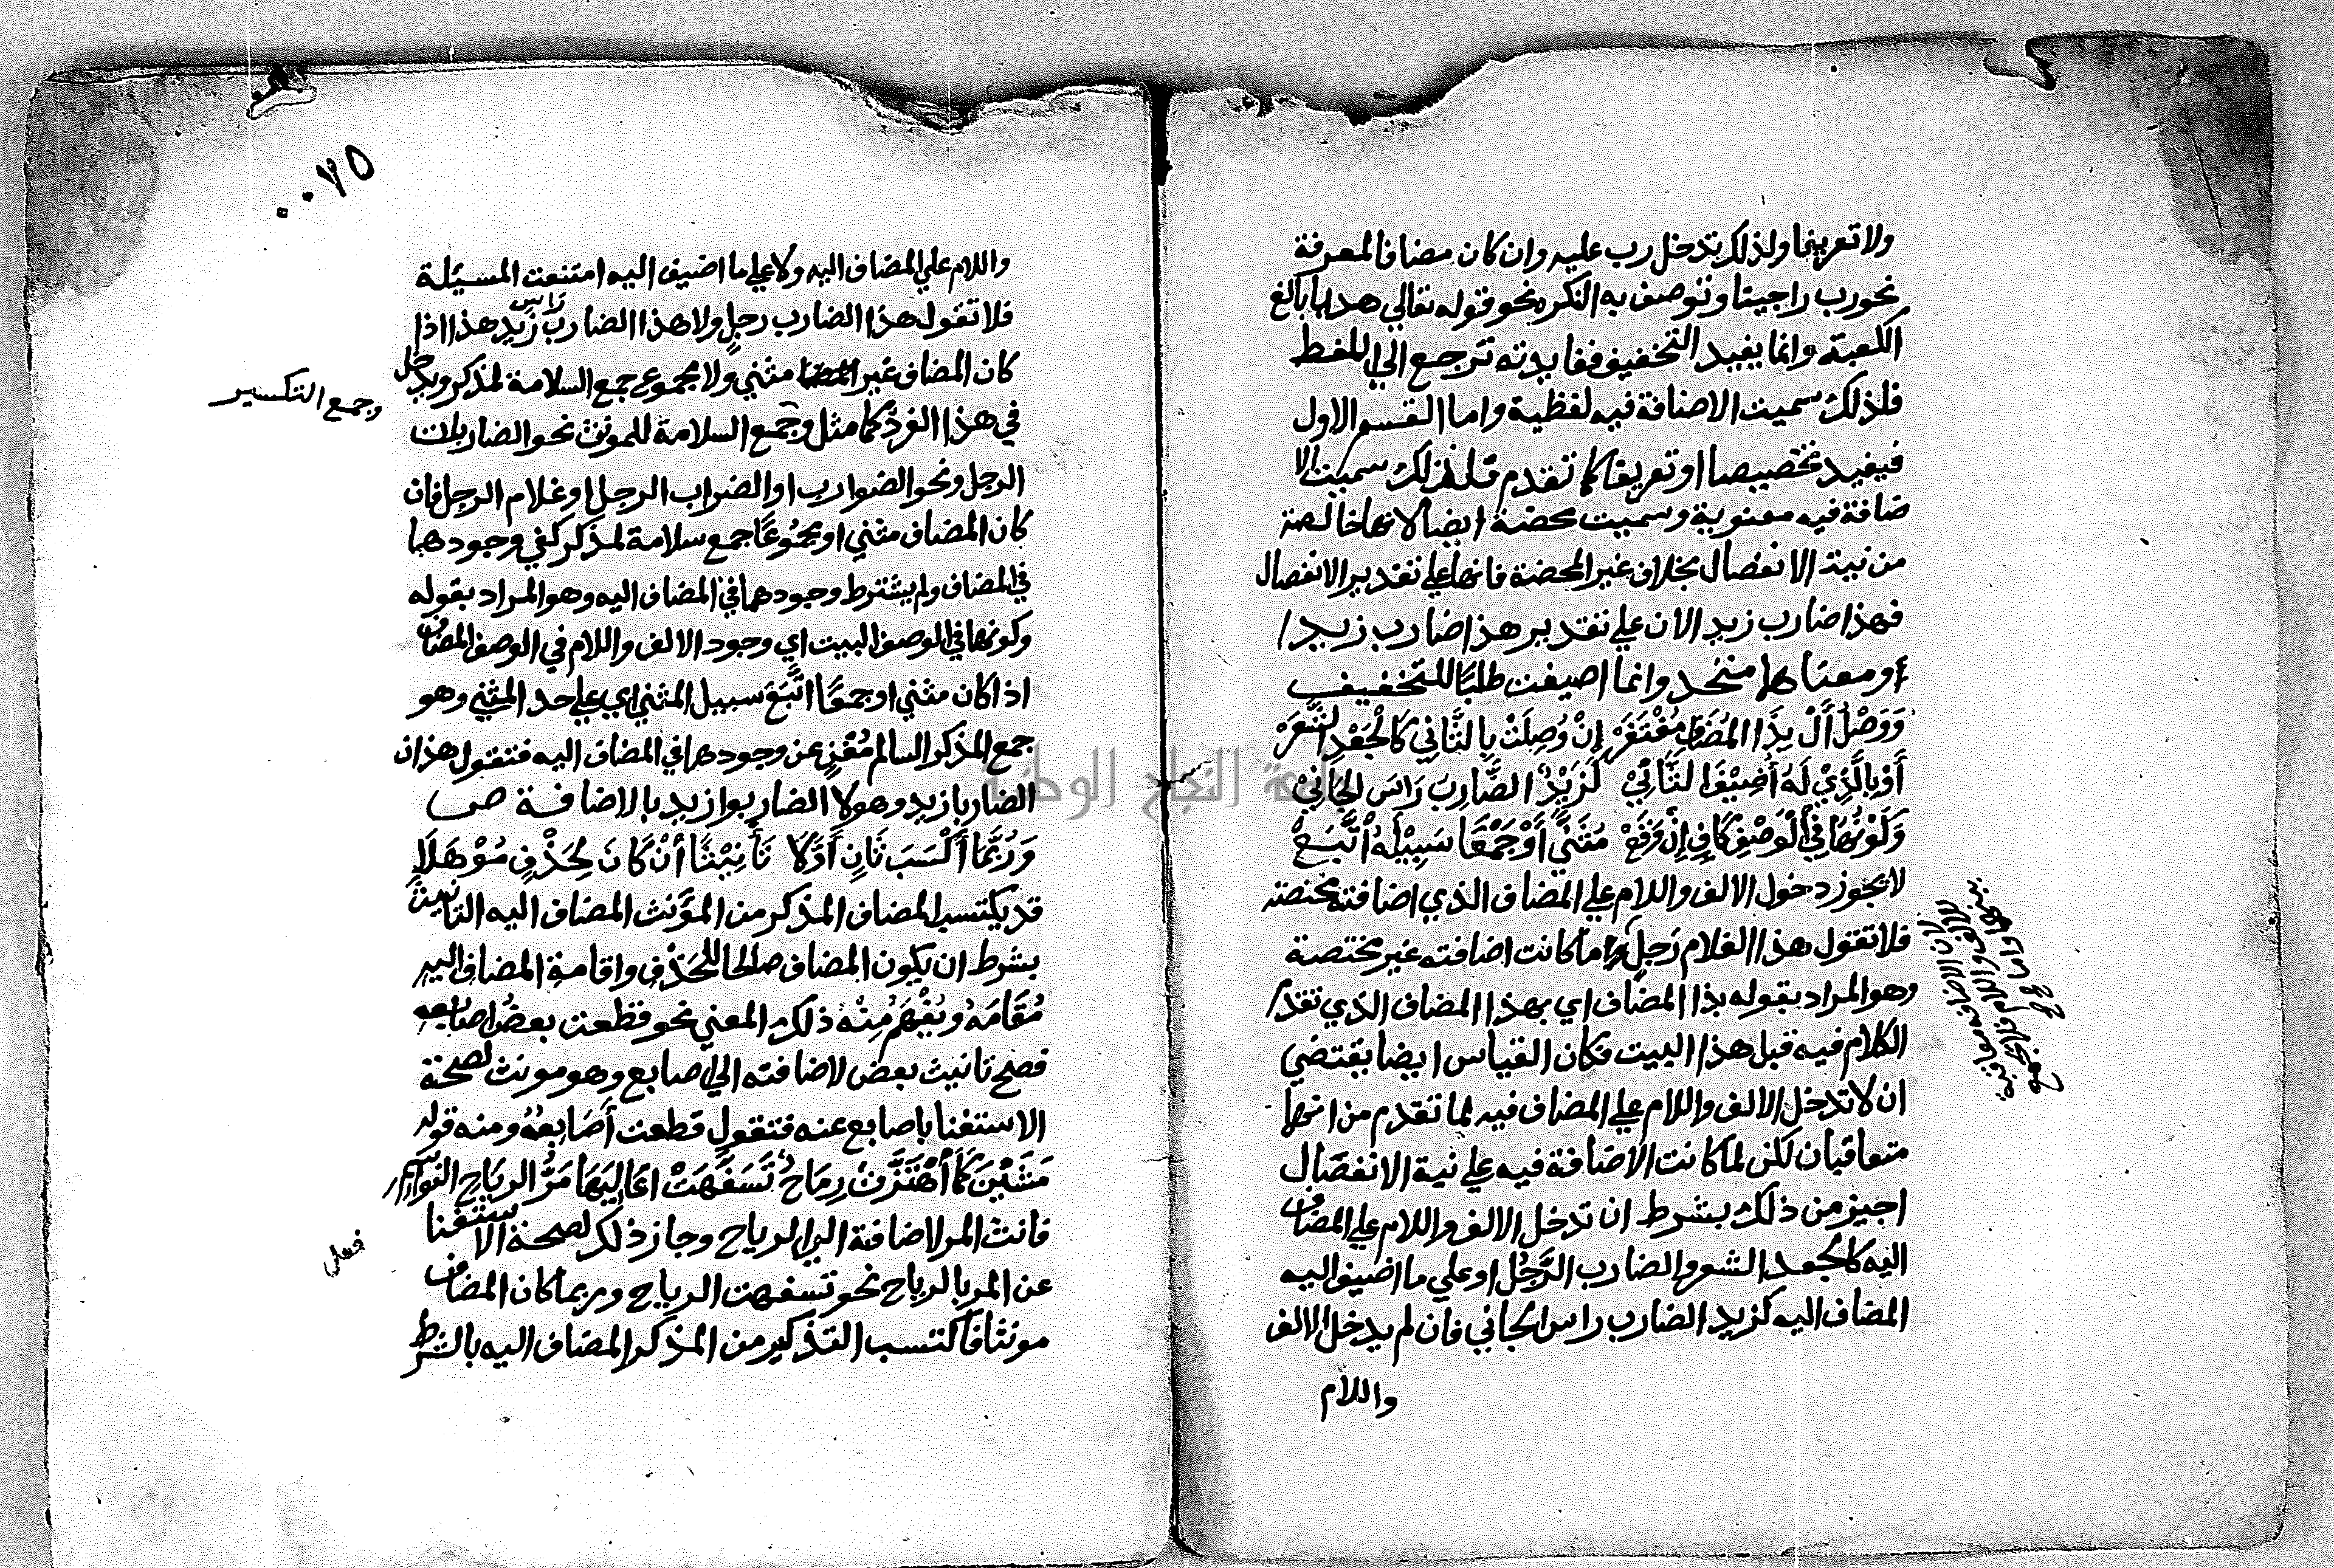 ولا تعريفا ولذلك تدخل رب عليه وان كان مضافا لمعرفة
نحو رب راجينا وتوصف به النكره نحو قوله تعالي هديا بالغ
الكعبة وانما يفيد التخفيف ففايدته ترجع الي اللفظ
فلذلك سميت الاضافة فيه لفظية واما القسم الاول
فيفيد تخصيصا او تعريفا كما تقدم فلذلك سميت الا
ضافة فيه معنوية وسميت محضة ايضا لانها خالصة
من نية الانفصال بخلاف غير المحضة فانها علي تقدير الانفصال
فهذا ضارب زيد الان علي تقدير هذا ضارب زيدا
ومعناها متحد وانما اضيفت طلبا للتخفيف
وَوَصْلُ أَلْ بِذَا المُضَافِ مُغْتَفَرْ إِنْ وُصِلَتْ بِالثَّانِي كَالْجَعْدِ الشَّعَرْ
أَوْ بِالَّذِيْ لَهُ أُضِيْفَ الثَّانِيْ كَزَيْدٌ الضَّارِبُ رَاسَ الْجَانِيْ
وَكَوْنُهَا فِيْ الْوَصْفِ كَافٍ إِنْ وَقَعْ مُثَنًّي أَوْ جَمْعًا سَبِيْلَهُ اتَّبَعْ
لا يجوز دخول الالف واللام علي المضاف الذي اضافته مختصة
فلا تقول هذا الغلام رجلٍ واما كانت اضافته غير مختصة
وهو المراد بقوله بذا المضاف اي بهذا المضاف الذي تقد
الكلام فيه قبل هذا البيت فكان القياس ايضا يقتضي
ان لا تدخل الالف واللام علي المضاف فيه لما تقدم من انها
متعاقبان لكن لما كانت الاضافة فيه علي نية الانفصال
اجيز من ذلك بشرط ان تدخل الالف واللام علي المضاف
اليه كالجعد الشعر والضارب الرَّجُل او علي ما اضيف اليه
المضاف اليه كزيد الضارب راس الجاني فان لم يدخل الالف
واللام
لان الاضافة معاقبة
للالف واللام فلا يجمع
٠٠٧٥
واللام علي المضاف اليه ولا علي ما اضيف اليه امتنعت المسيئلة
فلا تقول هذا الضارب رجلٍ ولا هذا الضارب راس زيد هذا اذا
كان المضاف غير مثني ولا مجموع جمع السلامة لمذكر ويدخل
وجمع التكسير
في هذا الفرد كما مثل وجمع السلامة للمونث نحو الضاربات
الرجل ونحو الضوارب او الضراب الرجل او غلام الرجل فان
كان المضاف مثني او مجموعًا جمع سلامة لمذكر كفي وجودها
في المضاف ولم يشترط وجودها في المضاف اليه وهو المراد بقوله
وكونها في الوصف البيت اي وجود الالف واللام في الوصف المضاف
اذا كان مثني او جمعًا اتَّبَعَ سبيل المثني اي علي حد المثني وهو
جمع المذكر السالم مُغْنٍ عن وجودها في المضاف اليه فتقول هذان
الضاربا زيد وهولا الضاربوا زيد بالاضافة ص
وَرُبَّمَا أَكْسَبَ ثَانٍ أَوَّلًا تَأْنِيْثًا أنْ كَانَ لِحَذْفٍ مُوْهَلَا
قد يكتسب المضاف المذكر من المؤنث المضاف اليه التانيث
بشرط ان يكون المضاف صالحا للحَذْفِ واقامة المضاف اليه
مُقَامَهُ ويُفْهَمُ مِنْه ذلك المعني نحو قطعت بعضُ اصابعه
فصح تانيث بعض لاضافته الي اصابع وهو مونث لصحة
الاستغنا باصابع عنه فتقول قطعت أَصَابِعُهُ ومنه قوله
مَشَيْنَ كَمَا أهْتَزَّتْ رِمَاحٌ تَسَفَّهَتْ اعَالِيَهَا مَرُّ الرِيَاحِ النَوَاسِمِ
فانث المر لاضافة الي الرياح وجاز ذلك لصحة الاستغنا
فعلي
عن المر بالرياح نحو تسفهت الرياح وربما كان المضاف
مونثا فاكتسب التذكير من المذكر المضاف اليه بالشرط
جامعة النجاح الوطنية